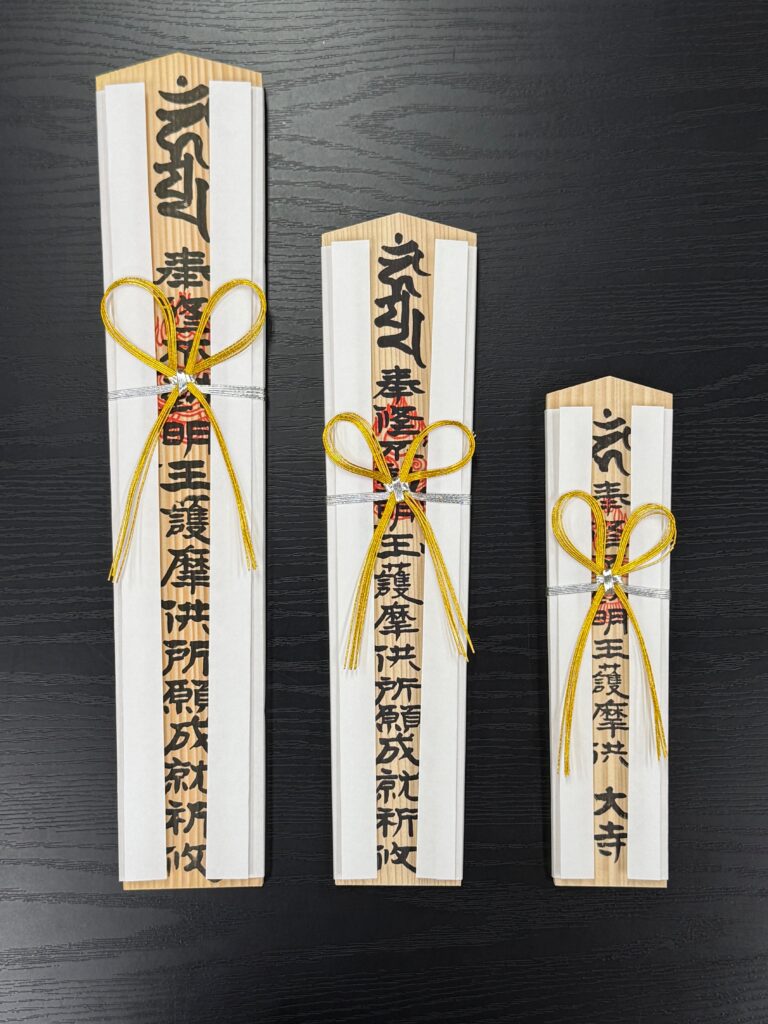 奉修不動明王護摩供所願成就祈攸
奉修不動明王護摩供所願成就祈攸
奉修不動明王護摩供 大寺